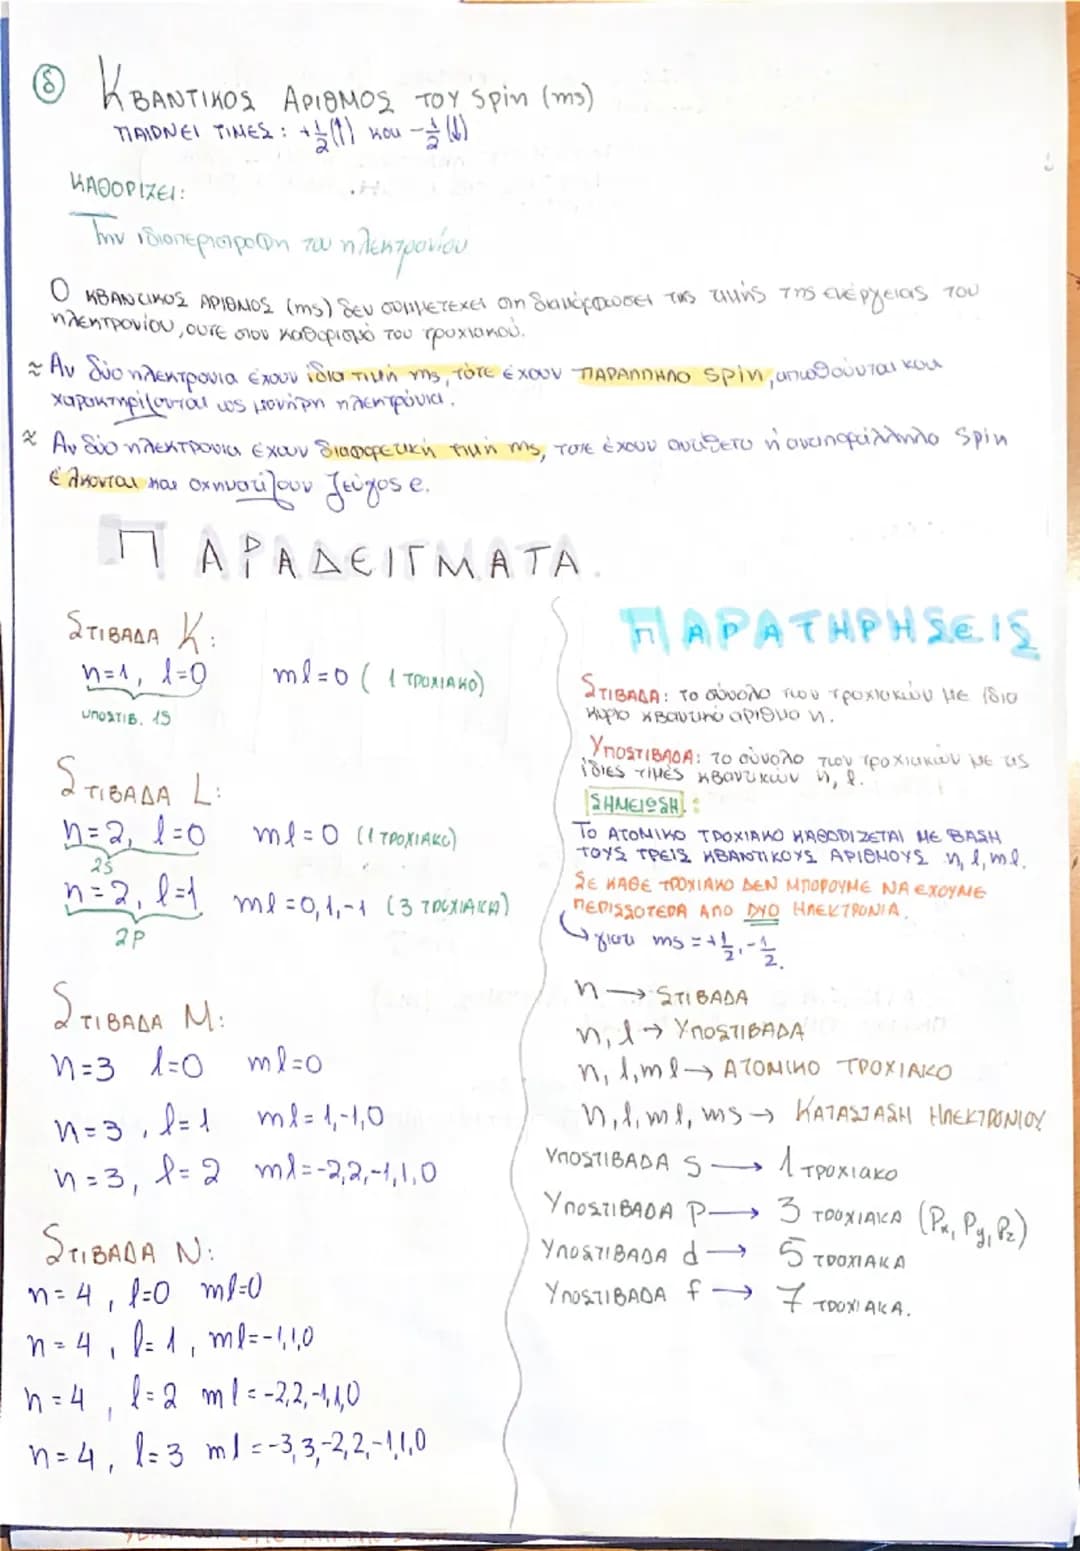 δ ΚΒΑΝΤΙΚΟΣ ΑΡΙΘΜΟΣ ΤΟΥ spin (ms)
ΠΑΙΡΝΕΙ ΤΙΜΕΣ: +1/2(↑) και -1/2(↓)
ΚΑΘΟΡΙΖΕΙ:
Την ιδιοπεριστροφη του ηλεκτρονίου
Ο ΚΒΑΝΤΙΚΟΣ ΑΡΙΘΜΟΣ (ms) δεν συμμετέχει στη διαμόρφωσει της τιμής της ενέργειας του
ηλεκτρονίου, ουτε στον καθορισμό του τροχιακού.
≈ Αν δύο ηλεκτρονια έχουν ίδια τιμή ms, τότε έχουν ΠΑΡΑΛΛΗΛΟ spin, απωθούνται και
χαρακτηρίζονται ως μονήρη ηλεκτρόνια.
≈ Αν δύο ηλεκτρονια έχουν διαφορετική τιμή ms, τοτε έχουν αντίθετο ή αντιπαράλληλο spin
έλκονται και σχηματίζουν ζεύγος e.
ΠΑΡΑΔΕΙΓΜΑΤΑ.
ΣΤΙΒΑΔΑ K:
n=1, l=0 ml=0 (1 ΤΡΟΧΙΑΚΟ)
υποστιβ. 1S
ΣΤΙΒΑΔΑ L:
n=2, l=0 ml=0 (1 ΤΡΟΧΙΑΚΟ)
2S
n=2, l=1 ml=0,1,-1 (3 ΤΡΟΧΙΑΚΑ)
2P
ΣΤΙΒΑΔΑ M:
n=3 l=0 ml=0
n=3, l=1 ml=1,-1,0
n=3, l=2 ml=-2,2,-1,1,0
ΣΤΙΒΑΔΑ N:
n=4, l=0 ml=0
n=4, l=1, ml=-1,1,0
n=4, l=2 ml=-2,2,-1,1,0
n=4, l=3 ml=-3,3,-2,2,-1,1,0
ΠΑΡΑΤΗΡΗΣΕΙΣ
ΣΤΙΒΑΔΑ: το σύνολο των τροχιακών με ίδιο
κύριο κβαντικό αριθμο n.
ΥΠΟΣΤΙΒΑΔΑ: το σύνολο των τροχιακών με τις
ίδιες τιμές κβαντικών n, l.
ΣΗΜΕΙΩΣΗ:
ΤΟ ΑΤΟΜΙΚΟ ΤΡΟΧΙΑΚΟ ΚΑΘΟΡΙΖΕΤΑΙ ΜΕ ΒΑΣΗ
ΤΟΥΣ ΤΡΕΙΣ ΚΒΑΝΤΙΚΟΥΣ ΑΡΙΘΜΟΥΣ n, l, ml.
ΣΕ ΚΑΘΕ ΤΡΟΧΙΑΚΟ ΔΕΝ ΜΠΟΡΟΥΜΕ ΝΑ ΕΧΟΥΜΕ
ΠΕΡΙΣΣΟΤΕΡΑ ΑΠΟ ΔΥΟ ΗΛΕΚΤΡΟΝΙΑ.
↳ γιατι ms=+1/2,-1/2.
n → ΣΤΙΒΑΔΑ
n, l → ΥΠΟΣΤΙΒΑΔΑ
n, l, ml → ΑΤΟΜΙΚΟ ΤΡΟΧΙΑΚΟ
n, l, ml, ms → ΚΑΤΑΣΤΑΣΗ ΗΛΕΚΤΡΟΝΙΟΥ
ΥΠΟΣΤΙΒΑΔΑ S → 1 ΤΡΟΧΙΑΚΟ
ΥΠΟΣΤΙΒΑΔΑ P → 3 ΤΡΟΧΙΑΚΑ (Px, Py, Pz)
ΥΠΟΣΤΙΒΑΔΑ d → 5 ΤΡΟΧΙΑΚΑ
ΥΠΟΣΤΙΒΑΔΑ f → 7 ΤΡΟΧΙΑΚΑ.